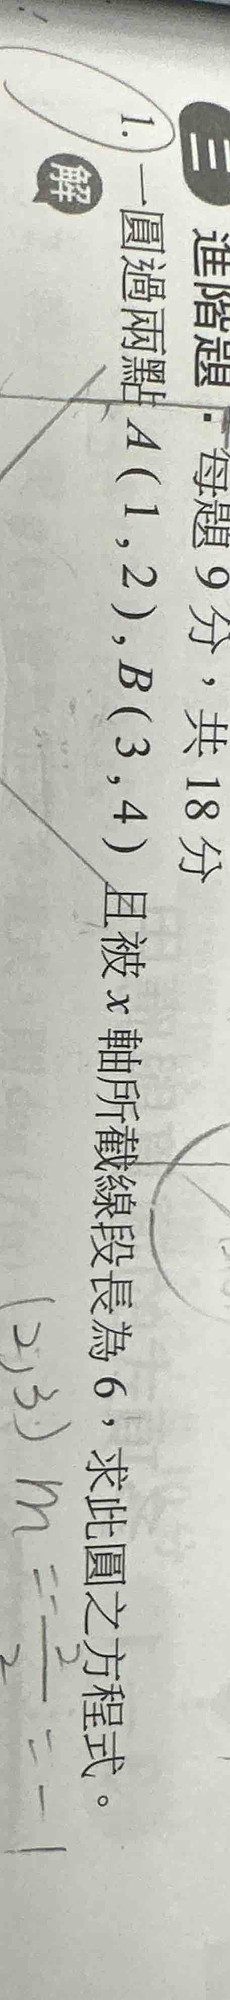 三 進階題：每題 9 分，共 18 分
1. 一圓過兩點 A(1,2), B(3,4) 且被 x 軸所截線段長為 6，求此圓之方程式。
解
(2,3) m = -2/2 = -1